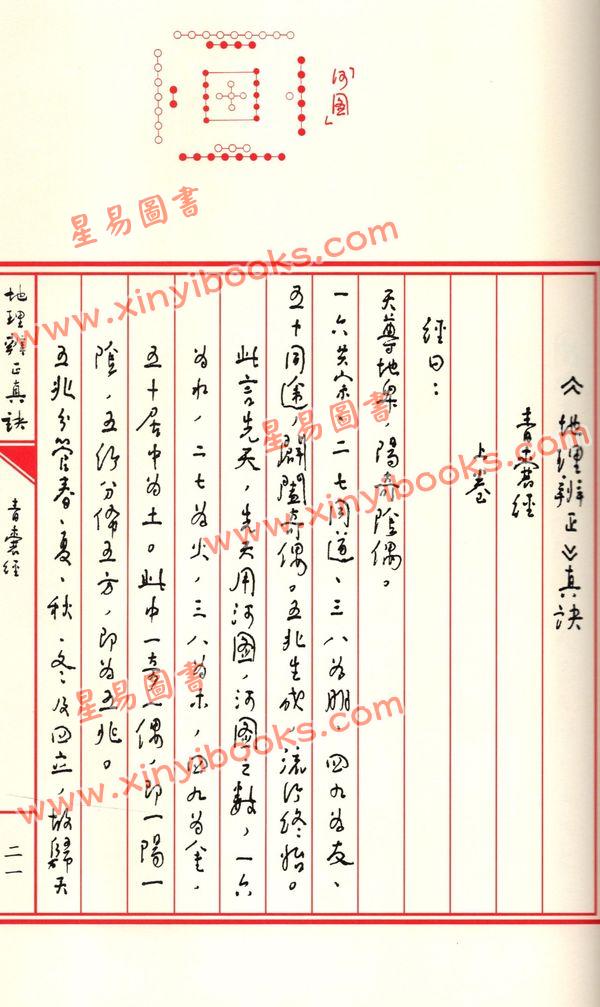 「河圖」
《地理辨正》真訣
青囊經
上卷
經曰：
天尊地卑，陽奇陰偶。
一六共宗、二七同道、三八為朋、四九為友、
五十同途，闢闔奇偶。五兆生成，流行終始。
此言先天，先天用河圖，河圖之數，一六
為水，二七為火，三八為木，四九為金，
五十居中為土。此中一奇一偶，即一陽一
陰，五行分佈五方，即為五兆。
五兆分管春、夏、秋、冬及四立，故歸天
地理辨正真訣
青囊經
二一
星易圖書
www.xinyibooks.com
星易圖書
www.xinyibooks.com
星易圖書
www.xinyibooks.com